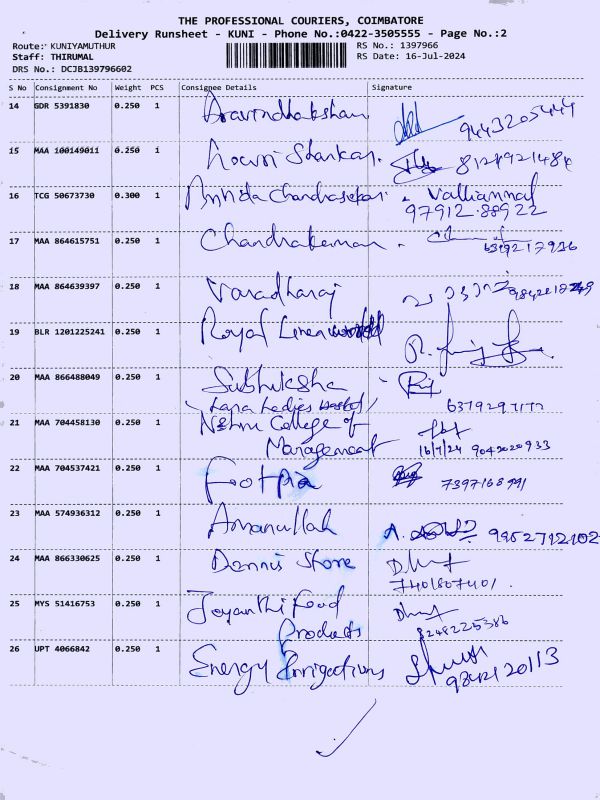 THE PROFESSIONAL COURIERS, COIMBATORE
Delivery Runsheet - KUNI - Phone No.:0422-3505555 - Page No.:2
Route: KUNIYAMUTHUR RS No.: 1397966
Staff: THIRUMAL RS Date: 16-Jul-2024
DRS No.: DCJB139796602
S No Consignment No Weight PCS Consignee Details Signature
14 GDR 5391830 0.250 1 Aravindhakshan 9443205444
15 MAA 100149011 0.250 1 Gowri Shankar.
16 TCG 50673730 0.300 1 Chandrasekar. Valliammal
97912 88922
17 MAA 864615751 0.250 1 Chandrakumar. 6369217936
18 MAA 864639397 0.250 1 Varadharaj
19 BLR 1201225241 0.250 1 Royal Linen world
20 MAA 866488049 0.250 1 Subhiksha
Ladies Hostel
21 MAA 704458130 0.250 1 Nehru College of
Management 16/7/24 9042020933
22 MAA 704537421 0.250 1 Footpia
23 MAA 574936312 0.250 1 Amanullah A. 9952712102
24 MAA 866330625 0.250 1 Dennis Store
7401807401.
25 MYS 51416753 0.250 1 Joyanthi Food
Products 8248225386
26 UPT 4066842 0.250 1 Energy Irrigations
9842120113